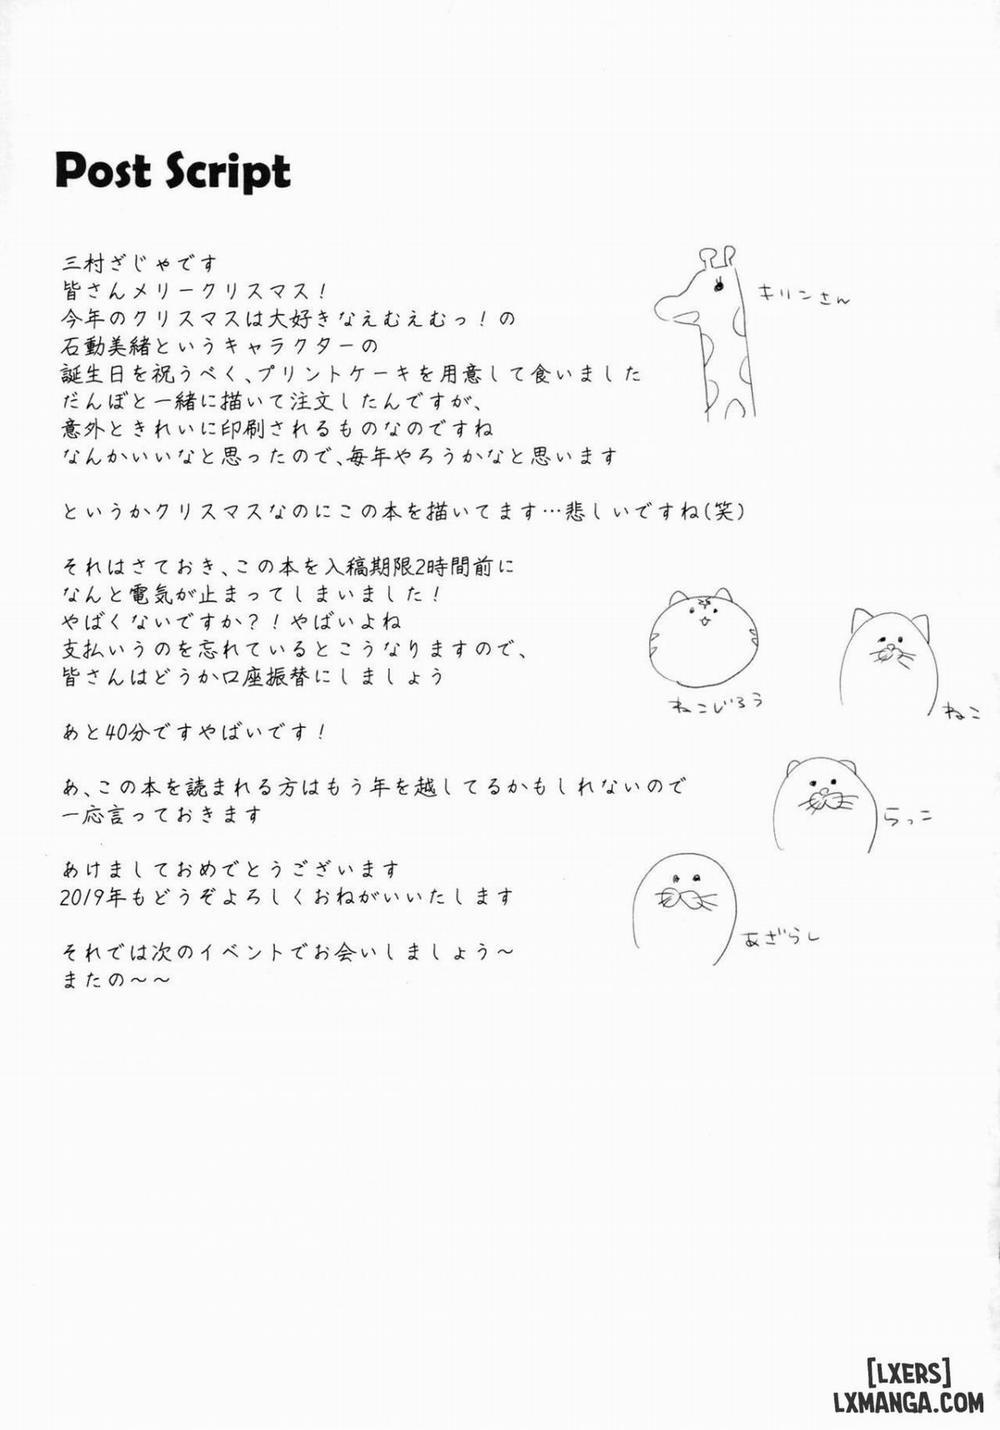 Post Script
三村ざじゃです
皆さんメリークリスマス!
今年のクリスマスは大好きなえむえむっ!の
石動美緒というキャラクターの
誕生日を祝うべく、プリントケーキを用意して食いました
だんぼと一緒に描いて注文したんですが、
意外ときれいに印刷されるものなのですね
なんかいいなと思ったので、毎年やろうかなと思います
というかクリスマスなのにこの本を描いてます…悲しいですね(笑)
それはさておき、この本を入稿期限2時間前に
なんと電気が止まってしまいました!
やばくないですか?!やばいよね
支払いうのを忘れているとこうなりますので、
皆さんはどうか口座振替にしましょう
あと40分ですやばいです!
あ、この本を読まれる方はもう年を越してるかもしれないので
一応言っておきます
あけましておめでとうございます
2019年もどうぞよろしくおねがいいたします
それでは次のイベントでお会いしましょう〜
またの〜〜
キリンさん
ねこじろう
ねこ
らっこ
あざらし
[LXERS]
LXMANGA.COM